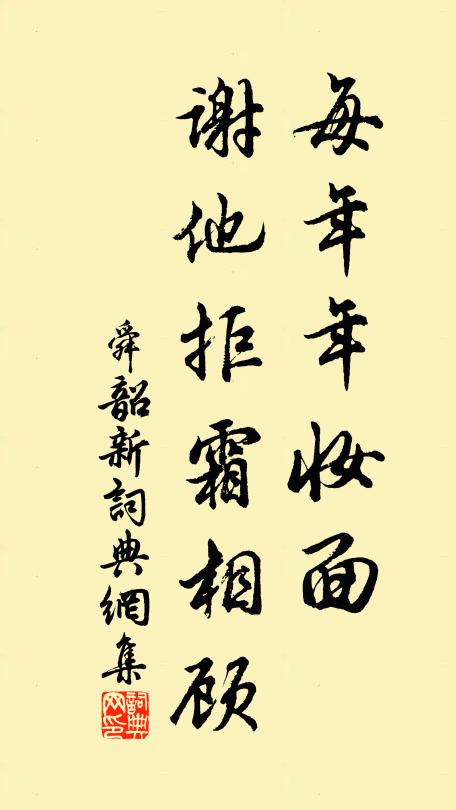 每年年妆面
谢他拒霜相顾
舜韶新詞典網集
詞典网印